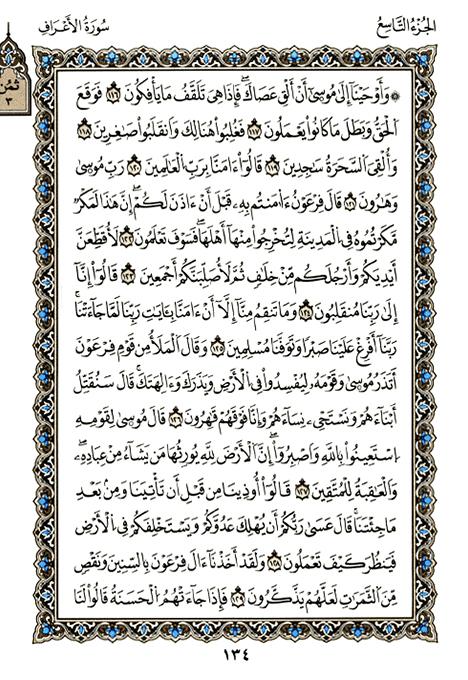 الجُزْءُ التَّاسِعُ
سُورَةُ الأَعْرَافِ
ثُمُن
٣
۞ وَأَوْحَيْنَا إِلَىٰ مُوسَىٰ أَنْ أَلْقِ عَصَاكَ فَإِذَا هِيَ تَلَقَّفُ مَا يَأْفِكُونَ ١١٦ فَوَقَعَ
الْحَقُّ وَبَطَلَ مَا كَانُوا يَعْمَلُونَ ١١٧ فَغُلِبُوا هُنَالِكَ وَانقَلَبُوا صَٰغِرِينَ ١١٨
وَأُلْقِيَ السَّحَرَةُ سَٰجِدِينَ ١١٩ قَالُوا ءَامَنَّا بِرَبِّ الْعَٰلَمِينَ ١٢٠ رَبِّ مُوسَىٰ
وَهَٰرُونَ ١٢١ قَالَ فِرْعَوْنُ ءَاٰمَنتُم بِهِ قَبْلَ أَنْ ءَاذَنَ لَكُمْ إِنَّ هَٰذَا لَمَكْرٌ
مَّكَرْتُمُوهُ فِي الْمَدِينَةِ لِتُخْرِجُوا مِنْهَا أَهْلَهَا فَسَوْفَ تَعْلَمُونَ ١٢٢ لَأُقَطِّعَنَّ
أَيْدِيَكُمْ وَأَرْجُلَكُم مِّنْ خِلَٰفٍ ثُمَّ لَأُصَلِّبَنَّكُمْ أَجْمَعِينَ ١٢٣ قَالُوا إِنَّا
إِلَىٰ رَبِّنَا مُنقَلِبُونَ ١٢٤ وَمَا تَنقِمُ مِنَّا إِلَّا أَنْ ءَامَنَّا بِـَٔايَٰتِ رَبِّنَا لَمَّا جَاءَتْنَا
رَبَّنَا أَفْرِغْ عَلَيْنَا صَبْرًا وَتَوَفَّنَا مُسْلِمِينَ ١٢٥ وَقَالَ الْمَلَأُ مِن قَوْمِ فِرْعَوْنَ
أَتَذَرُ مُوسَىٰ وَقَوْمَهُ لِيُفْسِدُوا فِي الْأَرْضِ وَيَذَرَكَ وَءَالِهَتَكَ قَالَ سَنَقْتُلُ
أَبْنَاءَهُمْ وَنَسْتَحْيِ نِسَاءَهُمْ وَإِنَّا فَوْقَهُمْ قَٰهِرُونَ ١٢٦ قَالَ مُوسَىٰ لِقَوْمِهِ
اسْتَعِينُوا بِاللَّهِ وَاصْبِرُوا إِنَّ الْأَرْضَ لِلَّهِ يُورِثُهَا مَن يَشَاءُ مِنْ عِبَادِهِ
وَالْعَٰقِبَةُ لِلْمُتَّقِينَ ١٢٧ قَالُوا أُوذِينَا مِن قَبْلِ أَن تَأْتِيَنَا وَمِنْ بَعْدِ
مَا جِئْتَنَا قَالَ عَسَىٰ رَبُّكُمْ أَن يُهْلِكَ عَدُوَّكُمْ وَيَسْتَخْلِفَكُمْ فِي الْأَرْضِ
فَيَنظُرَ كَيْفَ تَعْمَلُونَ ١٢٨ وَلَقَدْ أَخَذْنَا ءَالَ فِرْعَوْنَ بِالسِّنِينَ وَنَقْصٍ
مِّنَ الثَّمَرَٰتِ لَعَلَّهُمْ يَذَّكَّرُونَ ١٢٩ فَإِذَا جَاءَتْهُمُ الْحَسَنَةُ قَالُوا لَنَا
١٣٤